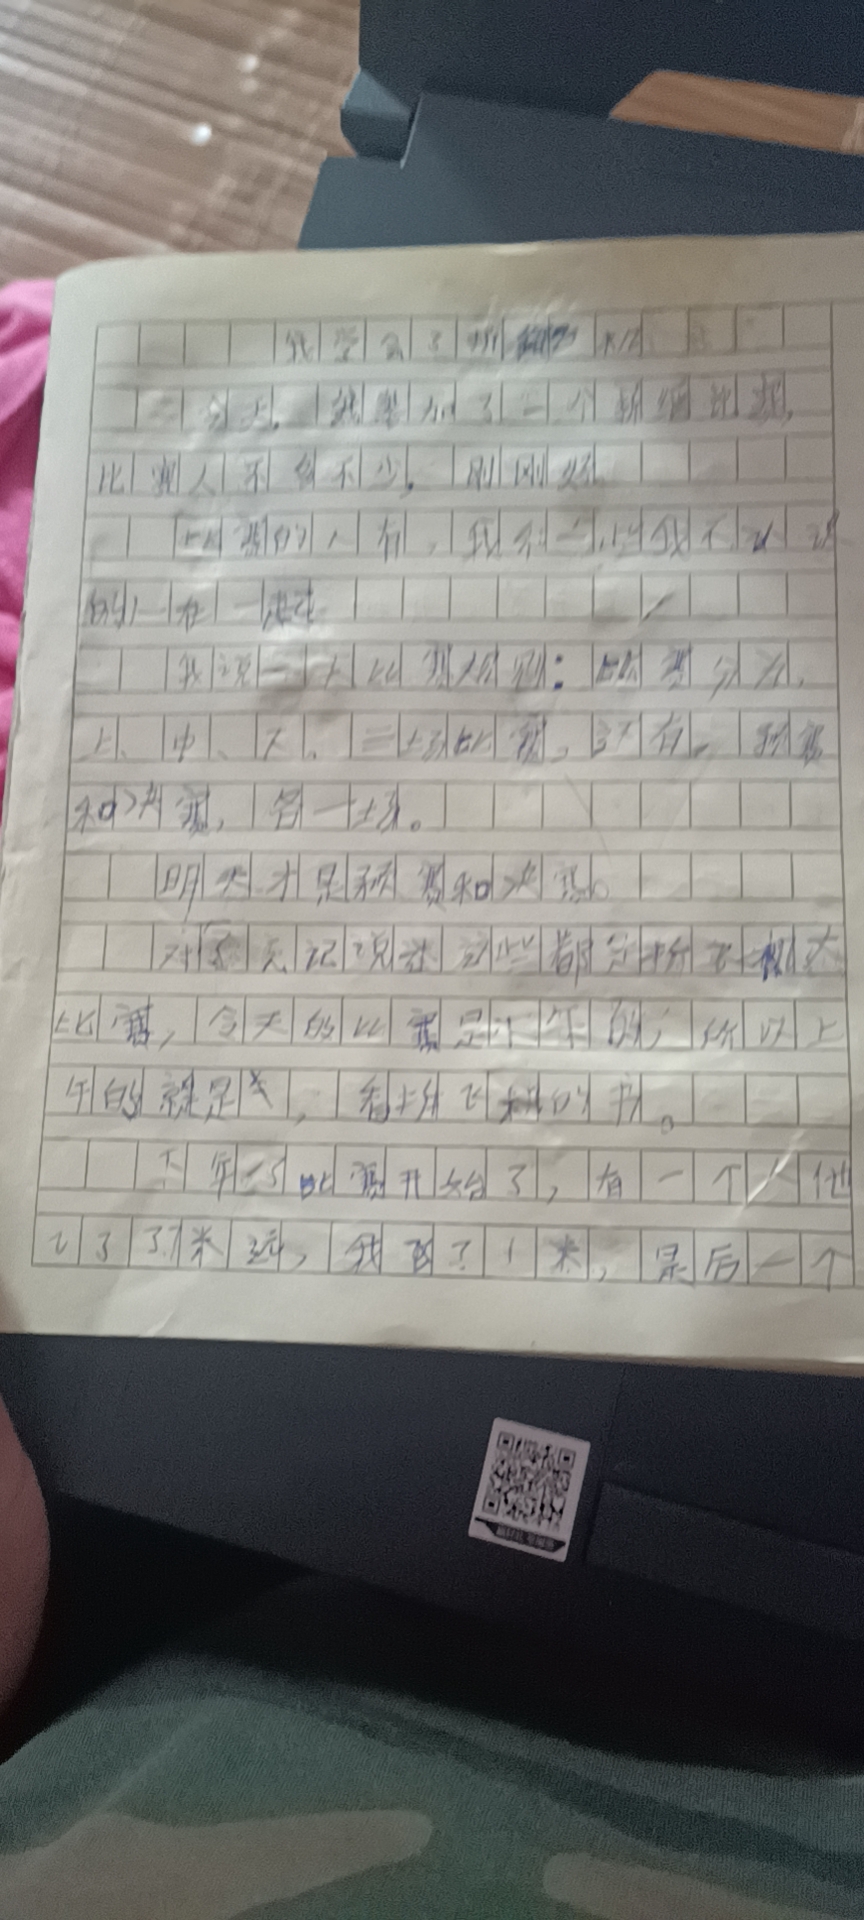 我学会了折飞机
今天,我参加了一个折纸比赛,
比赛人不多不少,刚刚好
比赛的人有,我和一些我不认识
的人在一起
我说一下比赛规则:比赛分为,
上、中、下,三场比赛,还有,预赛
和决赛,各一场。
明天才是预赛和决赛。
对了忘记说这些都是折飞机大
比赛,今天的比赛是下午的,所以上
午的就是,看折飞机的书。
下午了比赛开始了,有一个人他
飞了3.7米远,我飞了1米,最后一个